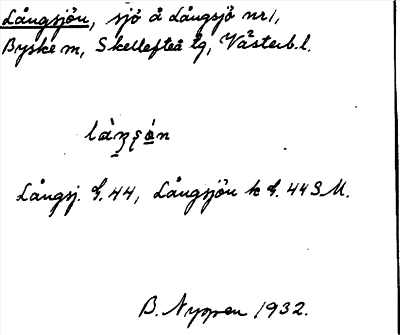 Långsjön, sjö å Långsjö nr 1,
Byske sn, Skellefteå tg, Västerb. l.
Långsj. G. 44, Långsjön k G. 44 S M.
B. Nygren 1932.